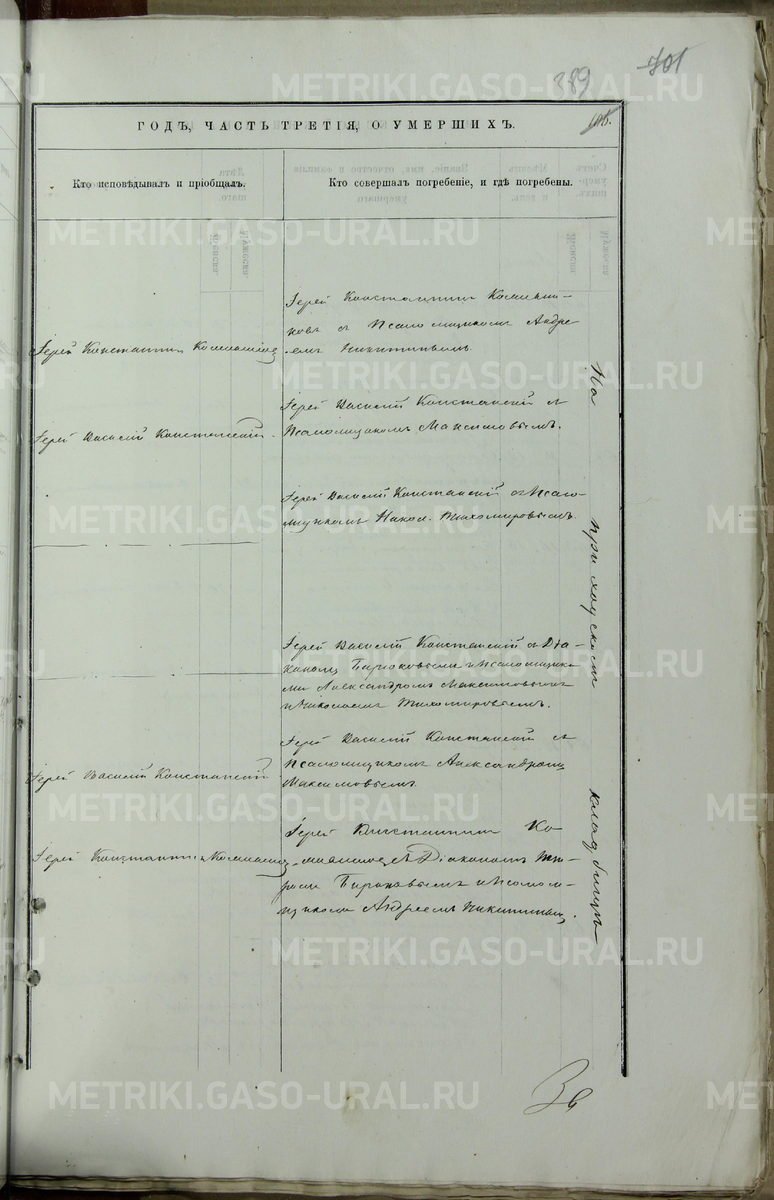 389
701
ГОДЪ, ЧАСТЬ ТРЕТІЯ, О УМЕРШИХЪ.
Кто исповѣдывалъ и пріобщалъ.
Кто совершалъ погребеніе, и гдѣ погребены.
Іерей Константинъ
Іерей Константинъ
съ Псаломщикомъ Андре-
емъ Никитинымъ.
Іерей Василій Констанскій.
Іерей Василій Констанскій съ
Псаломщикомъ Максимовымъ.
Іерей Василій Констанскій съ Псало-
мщикомъ Никол. Тихомировымъ.
Іерей Василій Констанскій съ Діа-
кономъ Бирюковымъ и Псаломщика-
ми Александромъ Максимовымъ
и Николаемъ Тихомировымъ.
Іерей Василій Констанскій
Іерей Василій Констанскій съ
Псаломщикомъ Александромъ
Максимовымъ
Іерей Константинъ
Іерей Константинъ Ко-
съ Діакономъ
Бирюковымъ и Псалом-
щикомъ Андреемъ Никитинымъ.
На приходскомъ кладбищѣ
METRIKI.GASO-URAL.RU